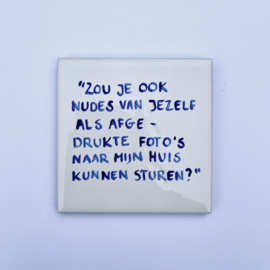 "ZOU JE OOK
NUDES VAN JEZELF
ALS AFGE-
DRUKTE FOTO'S
NAAR MIJN HUIS
KUNNEN STUREN?"